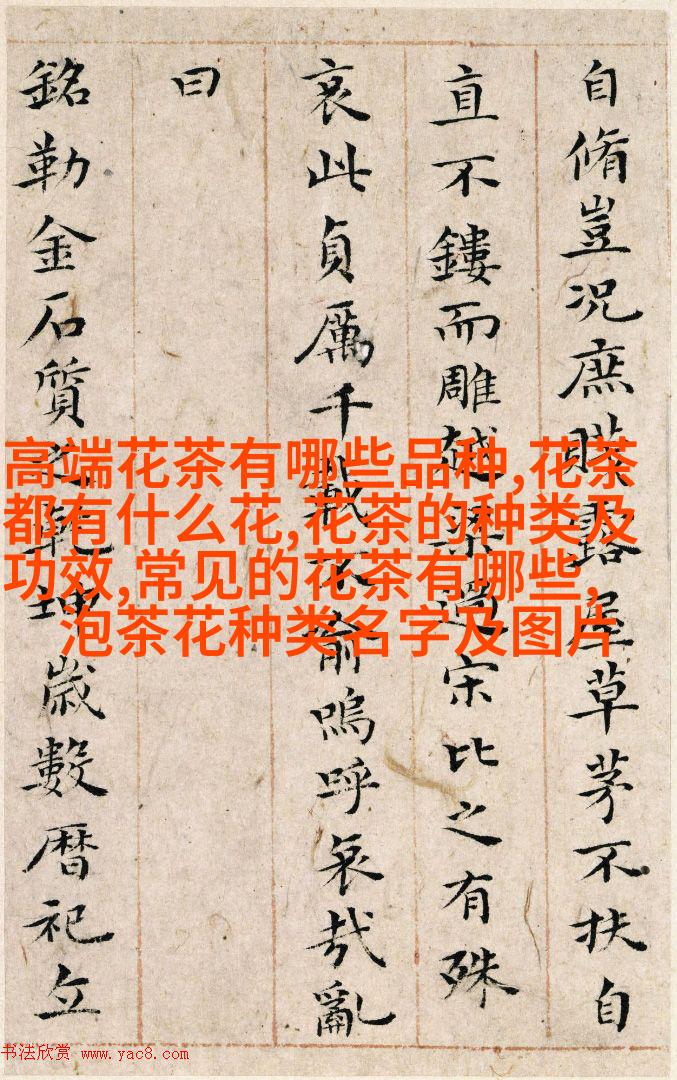 自脩豈况庶露屋草茅不扶自
直不鏤而雕越梁過宋比之有殊
哀此貞厲千載不渝嗚呼哀哉亂
曰
銘勒金石質之乾坤歲數曆祀立
高端花茶有哪些品种,花茶
都有什么花,花茶的种类及
功效,常见的花茶有哪些,
泡茶花种类名字及图片
书法欣赏 www.yac8.com